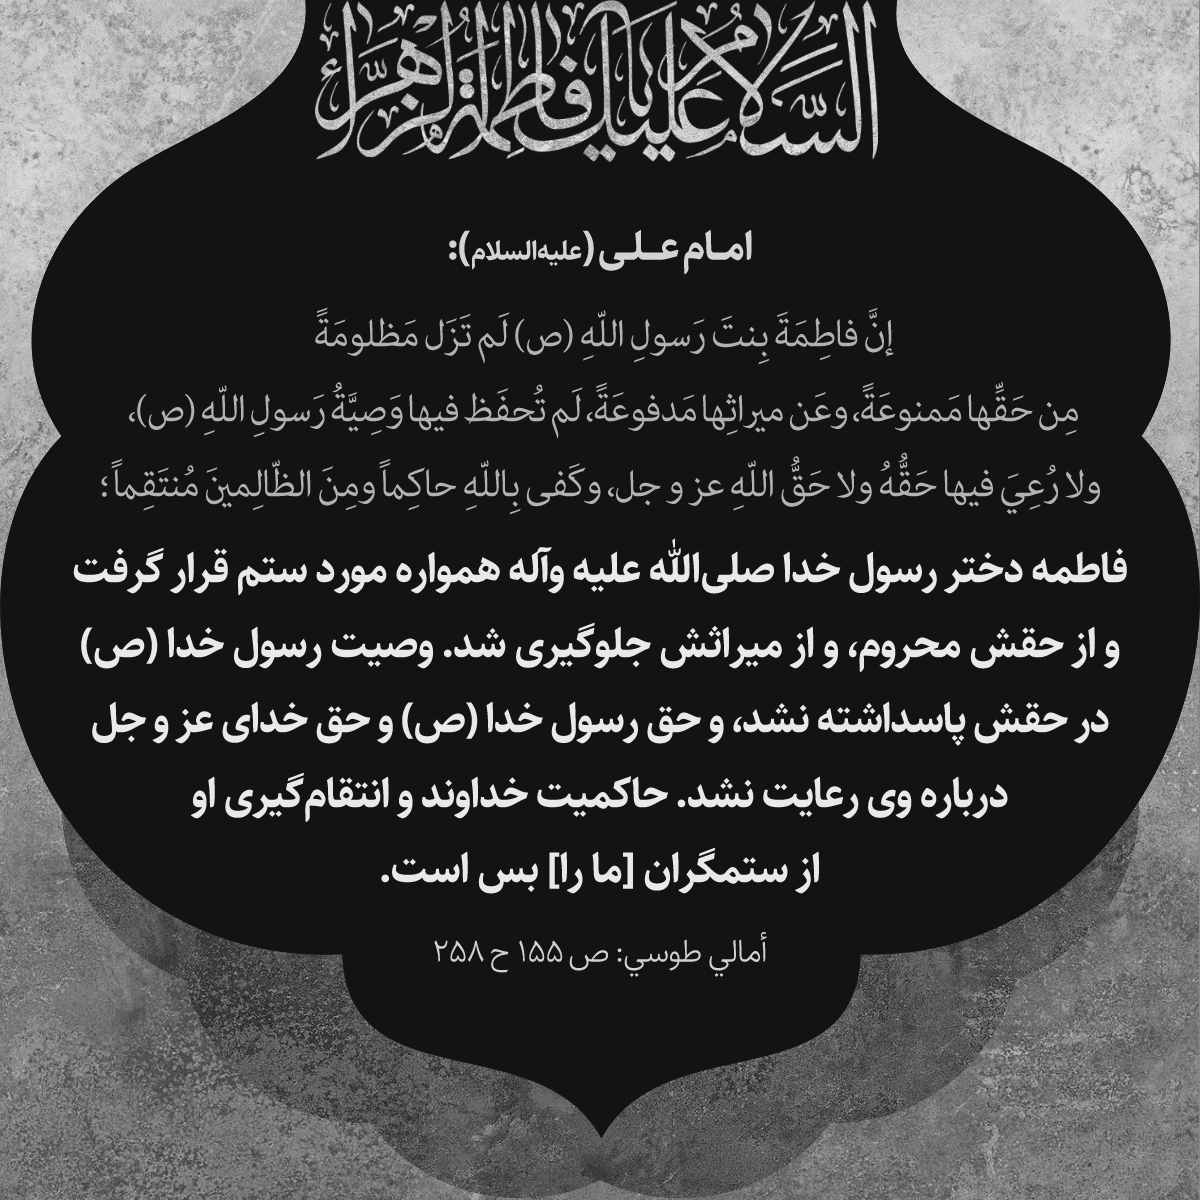 السَّلامُ عَلَیكِ یا فاطِمَةُ الزَّهراء
امـام عـلـی (علیه‌السلام):
إنَّ فاطِمَةَ بِنتَ رَسولِ اللّهِ (ص) لَم تَزَل مَظلومَةً
مِن حَقِّها مَمنوعَةً، وعَن میراثِها مَدفوعَةً، لَم تُحفَظ فیها وَصِیَّةُ رَسولِ اللّهِ (ص)،
ولا رُعِيَ فیها حَقُّهُ ولا حَقُّ اللّهِ عز و جل، وکَفی بِاللّهِ حاکِماً ومِنَ الظّالِمینَ مُنتَقِماً؛
فاطمه دختر رسول خدا صلی‌الله علیه وآله همواره مورد ستم قرار گرفت
و از حقش محروم، و از میراثش جلوگیری شد. وصیت رسول خدا (ص)
در حقش پاسداشته نشد، و حق رسول خدا (ص) و حق خدای عز و جل
درباره وی رعایت نشد. حاکمیت خداوند و انتقام‌گیری او
از ستمگران [ما را] بس است.
أمالي طوسي: ص ۱۵۵ ح ۲۵۸